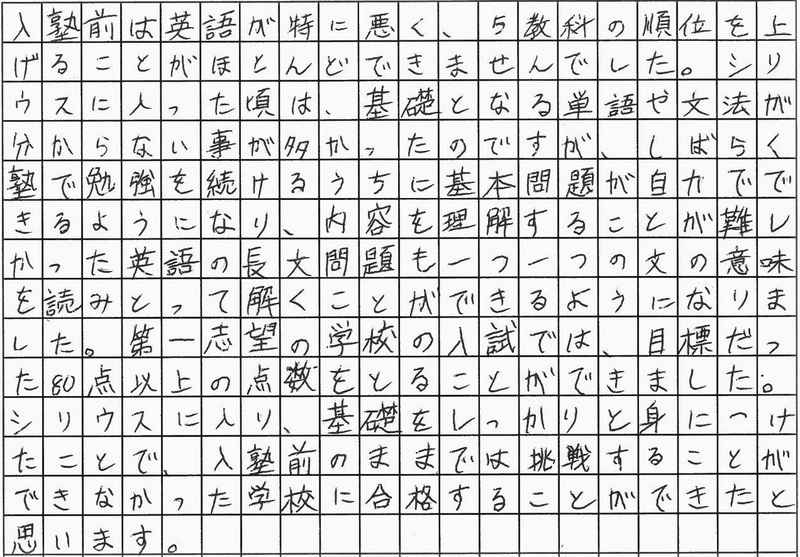 入塾前は英語が特に悪く、5教科の順位を上
げることがほとんどできませんでした。シリ
ウスに入った頃は、基礎となる単語や文法が
分からない事が多かったのですが、しばらく
塾で勉強を続けるうちに基本問題が自力でで
きるようになり、内容を理解することが難し
かった英語の長文問題も一つ一つの文の意味
を読みとって解くことができるようになりま
した。第一志望の学校の入試では、目標だっ
た80点以上の点数をとることができました。
シリウスに入り、基礎をしっかりと身につけ
たことで、入塾前のままでは挑戦することが
できなかった学校に合格することができたと
思います。